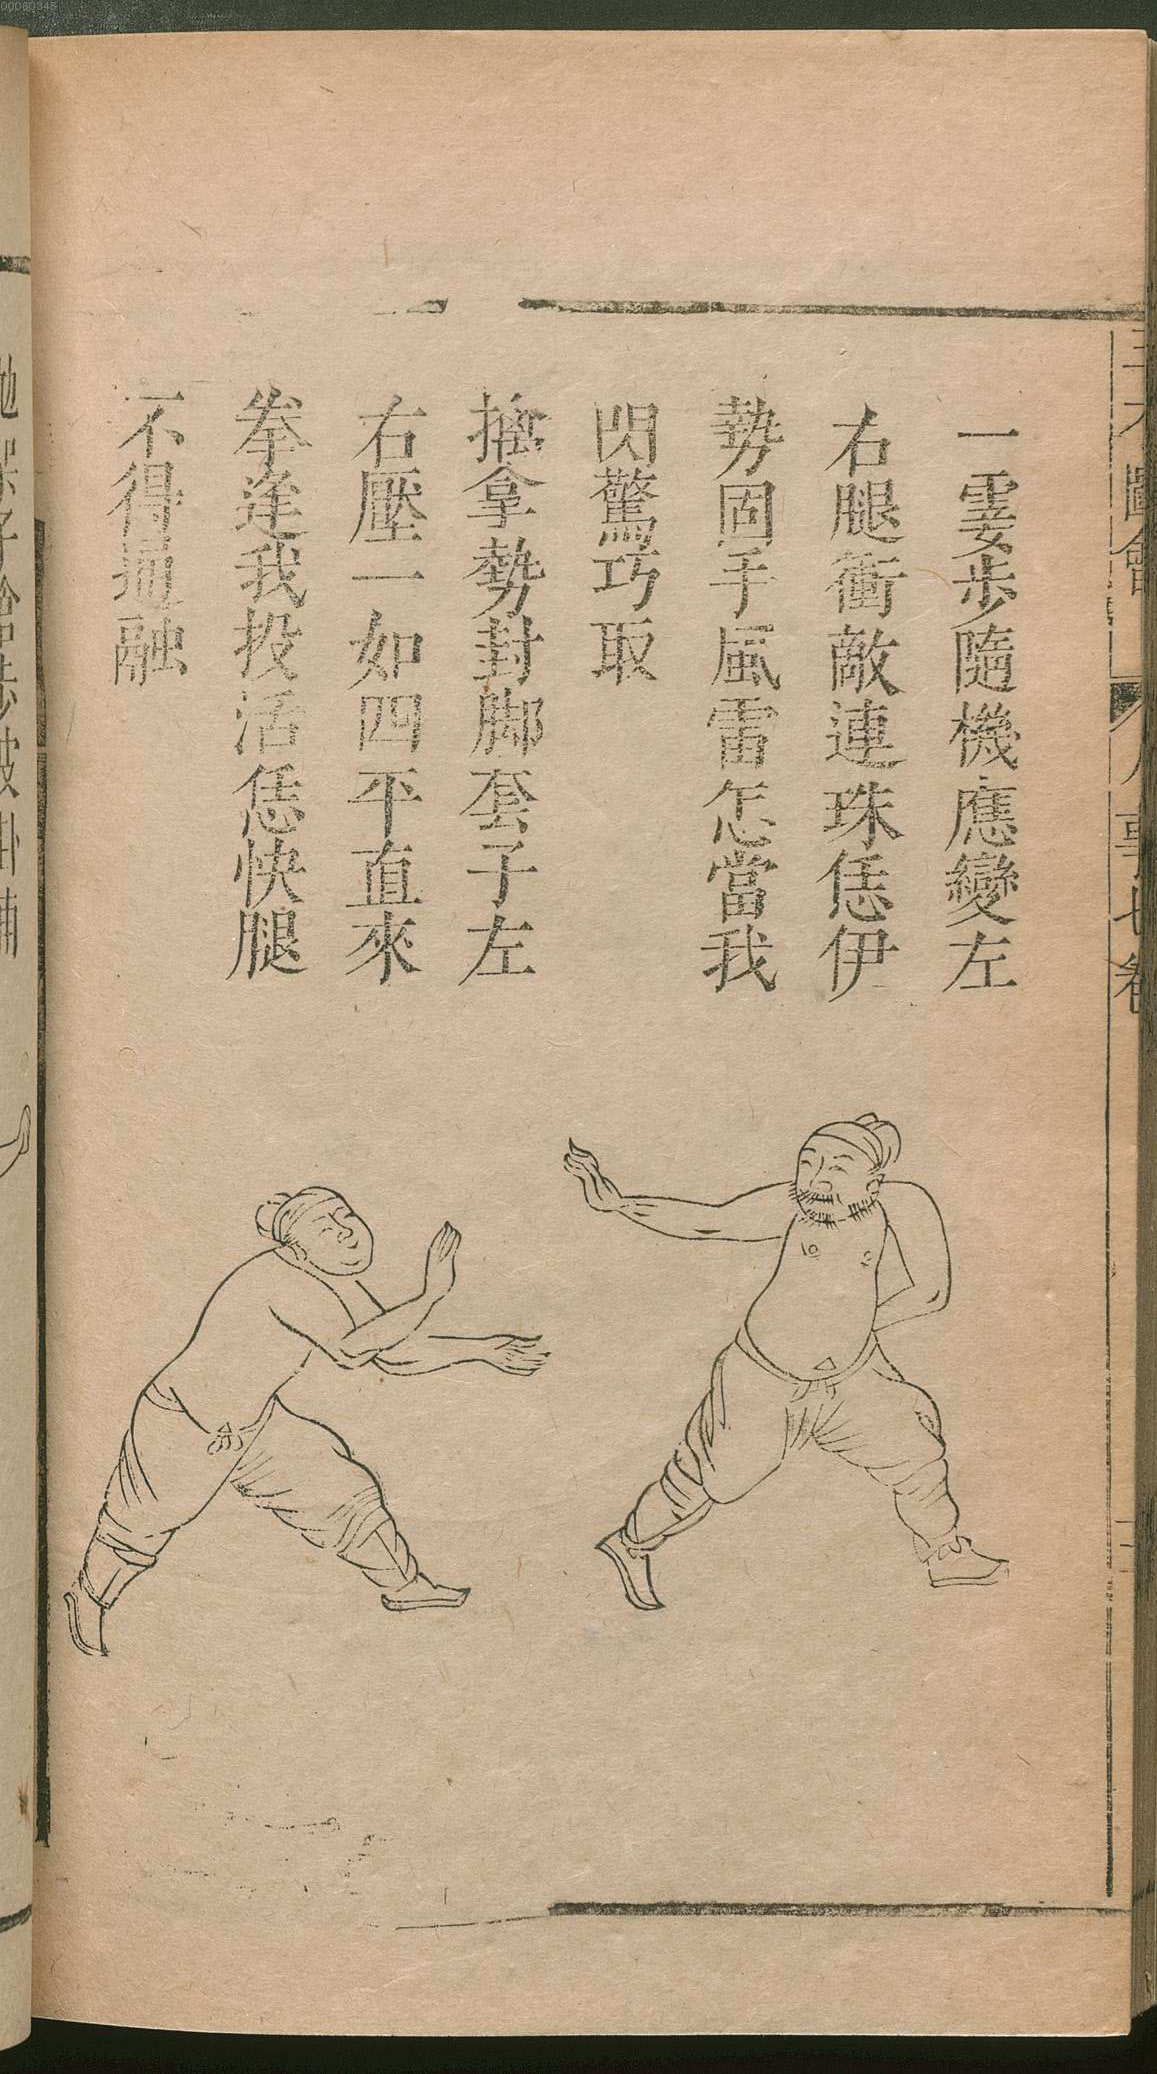 一霎步隨機應變左
右腿衝敵連珠恁伊
勢固手風雷怎當我
閃驚巧取
擒拿勢封脚套子左
右壓一如四平直來
拳逢我投活恁快腿
不得通融